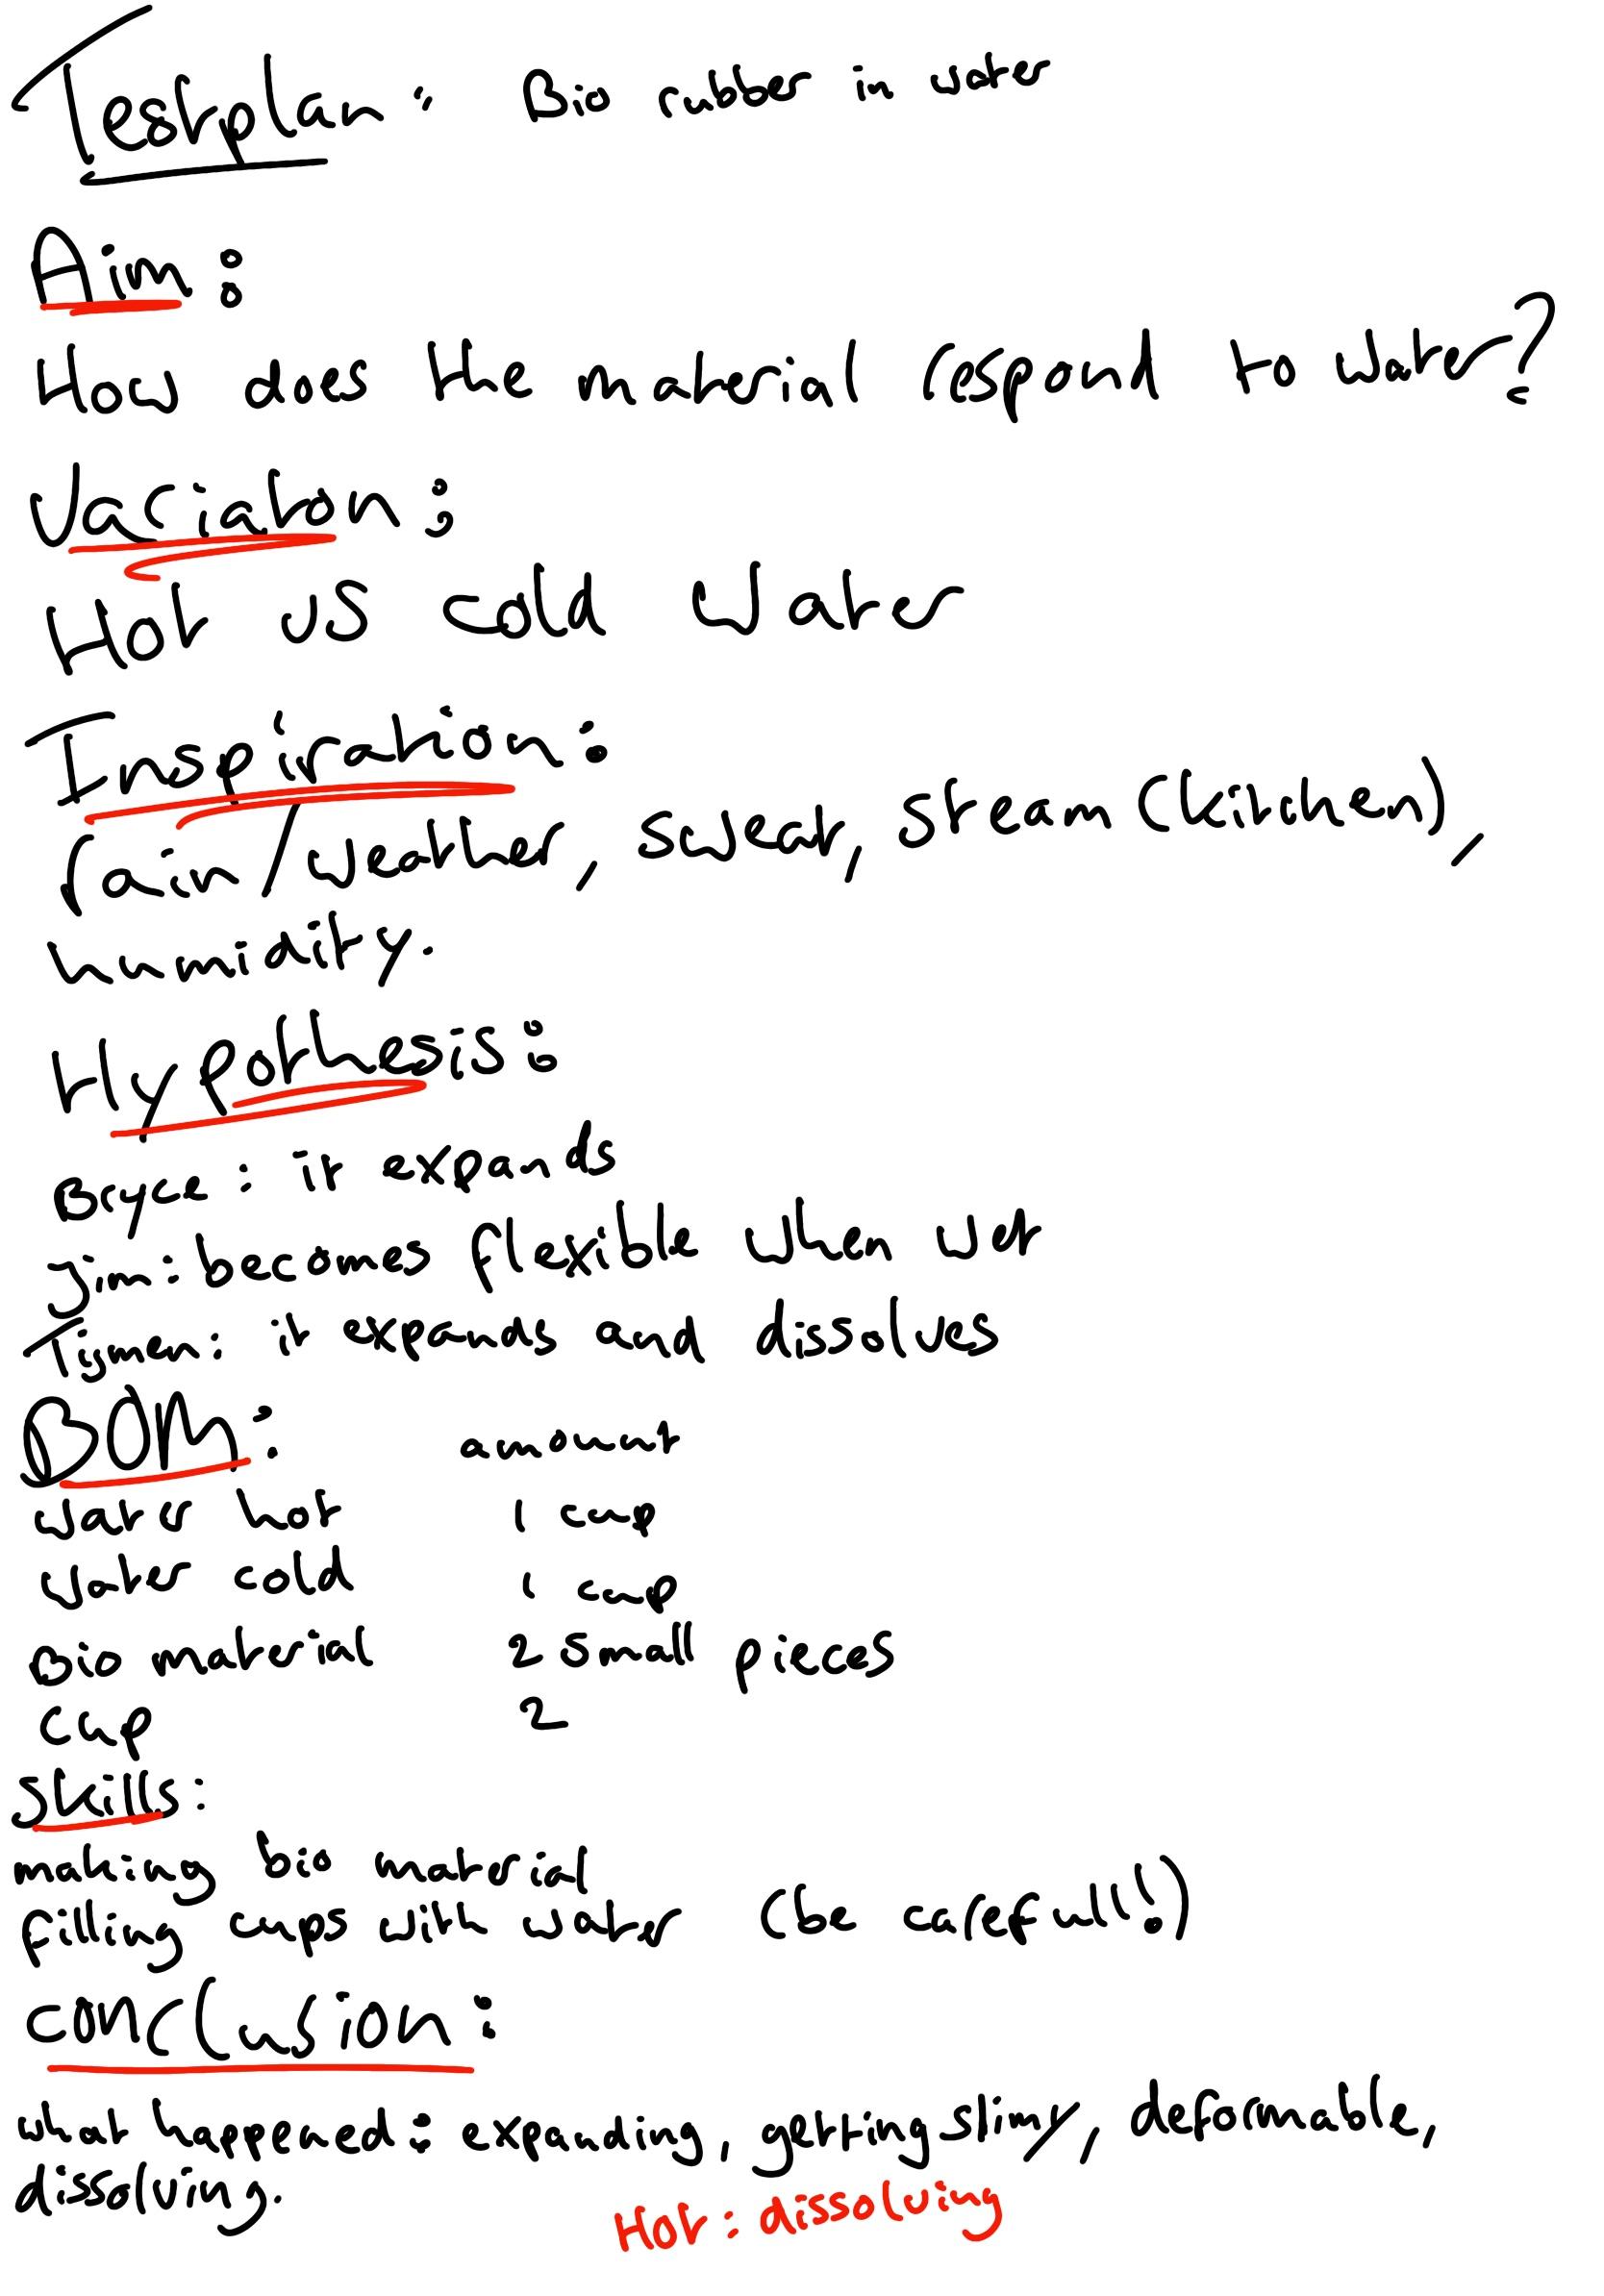 Testplan: Bio rubber in water
Aim:
How does the material respond to water?
Variation:
Hot vs cold water
Inspiration:
rain/weather, sweat, steam (kitchen),
humidity.
Hypothesis:
Bryce: it expands
jim: becomes flexible when wet
Tijmen: it expands and dissolves
BOM: amount
water hot 1 cup
water cold 1 cup
Bio material 2 small pieces
cup 2
skills:
making bio material
filling cups with water (be carefull!)
conclusion:
what happened: expanding, getting slimy, deformable,
dissolving.
Hot: dissolving